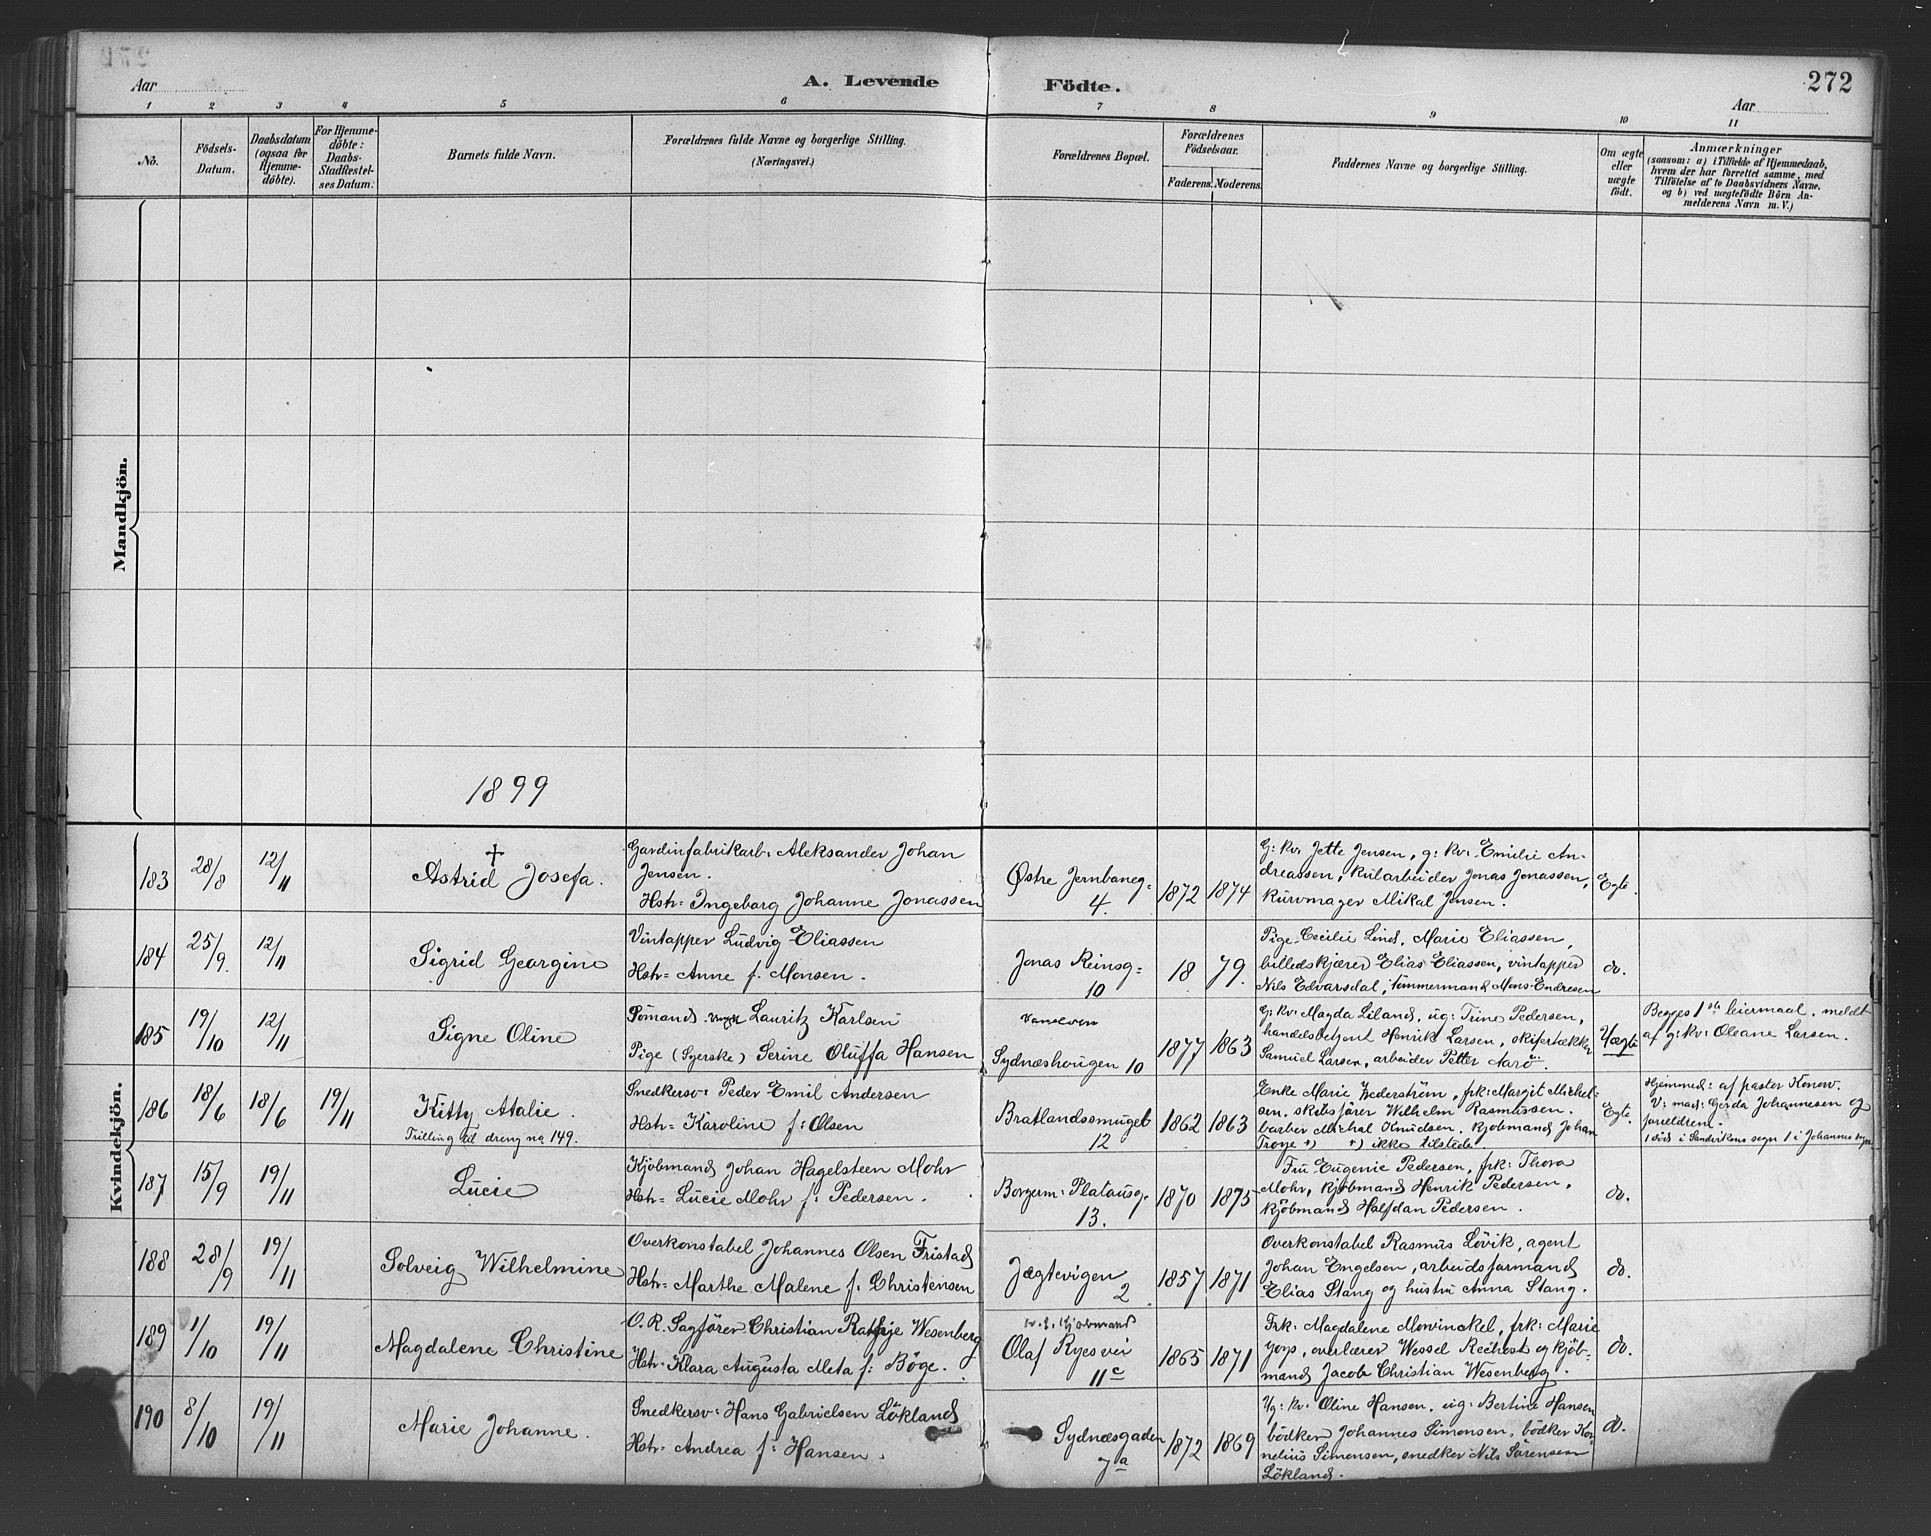 272
Aar
A. Levende Födte.
Aar
1 2 3 4 5 6 7 8 9 10 11
No.
Födsels-
Datum.
Daabsdatum
(ogsaa for
Hjemme-
döbte).
For Hjemme-
döbte:
Daabs-
Stadfæstel-
ses Datum.
Barnets fulde Navn.
Forældrenes fulde Navne og borgerlige Stilling.
(Næringsvei.)
Forældrenes Bopæl.
Forældrenes
Födselsaar.
Faderens. Moderens.
Faddernes Navne og borgerlige Stilling.
Om ægte
eller
uægte
födt.
Anmærkninger
(saasom: a) i Tilfælde af Hjemmedaab,
hvem der har forrettet samme, med
Tilföielse af to Daabsvidners Navne,
og b) ved uægtefödte Börn An-
melderens Navn m. V.)
Mandkjön.
1899
Kvindekjön.
183
28/8
12/11
†
Astrid Josefa.
Gardinfabrikarb: Aleksander Johan
Jensen.
Hstr= Ingeborg Johanne Jonassen
Østre Jernbaneg=
4.
1872
1874
G: kv: Jette Jensen, g: kv: Emilie An-
dreassen, kularbeider Jonas Jonassen,
kurvmager Mikal Jensen.
Egte.
184
25/9.
12/11
Sigrid Georgine
Vintapper Ludvig Eliassen
Hstr= Anne f. Monsen.
Jonas Reinsg=
10
18
79.
Pige Cecilie Lind, Marie Eliassen,
billedskjærer Elias Eliassen, vintapper
Nils Edvarsdal, tømmermand Mons Endresen
do.
185
19/10
12/11
Signe Oline
Sømand Lauritz Karlsen
Pige (Syerske) Serine Oluffa Hansen
Sydnæshougen 10
1877
1863
G: kv: Magda Liland, ug: Trine Pedersen,
handelsbetjent Henrik Larsen, skifertækker
Samuel Larsen, arbeider Petter Aarö.
Uægte
Begges 1ste leiermaal, meldt
af g: kv: Oleane Larsen.
186
18/6
18/6
19/11
Kitty Atalie.
Trilling til dreng no 149.
Snedkersv: Peder Emil Andersen
Hstr= Karoline f: Olsen
Bratlandssmuget
12
1862
1863
Enke Marie Wederström, frk: Margit Mickel-
sen, skibsförer Wilhelm Rasmussen.
barber Michal Knudsen, kjøbmand Johan
Troye +) +) ikke tilstede.
Egte.
Hjemmed: af pastor Konow.
V: mad: Gerda Johannesen og
forældrene.
187
15/9
19/11
Lucie
Kjøbmand Johan Hagelsteen Mohr
Hstr= Lucie Mohr f: Pedersen.
Borgerm: Platousg.
13.
1870
1875
Fru Eugenie Pedersen, frk: Thora
Mohr, kjøbmand Henrik Pedersen,
kjøbmand Halfdan Pedersen.
do.
188
28/9
19/11
Solveig Wilhelmine
Overkonstabel Johannes Olsen Fristad
Hstr= Marthe Malene f. Christensen
Jægtevigen
2
1857
1871
Overkonstabel Rasmus Lövik, agent
Johan Engelsen, arbeidsformand
Elias Stang og hustru Anna Stang.
do.
189
1/10
19/11
Magdalene Christine
O. R. Sagförer Christian Rathje Wesenberg
Hstr= Klara Augusta Meta f: Böge.
Olaf Ryesvei
11c
1865
1871
Frk: Magdalene Mowinckel, frk: Marie
overlærer Wessel og kjöb-
mand Jacob Christian Wesenberg.
do.
190
8/10
19/11
Marie Johanne.
Snedkersv: Hans Gabrielsen Lökland
Hstr= Andrea f: Hansen.
Sydnæsgaden
7a
1872
1869
Ug: kv: Oline Hansen, ug: Bertine Hansen
bödker Johannes Simonsen, bödker Kor-
nelius Simonsen, snedker Nils Sörensen
Lökland.
do.